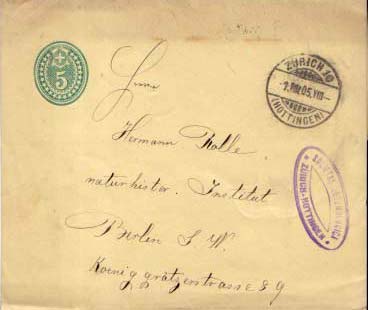 5
ZÜRICH 10
1.VIII.05.VIII–
(HOTTINGEN)
Herrn
Hermann Rolle
naturhistor. Institut
Berlin S.W.
Koeniggrätzerstrasse 89
SOCIETAS ENTOMOLOGICA
ZÜRICH-HOTTINGEN